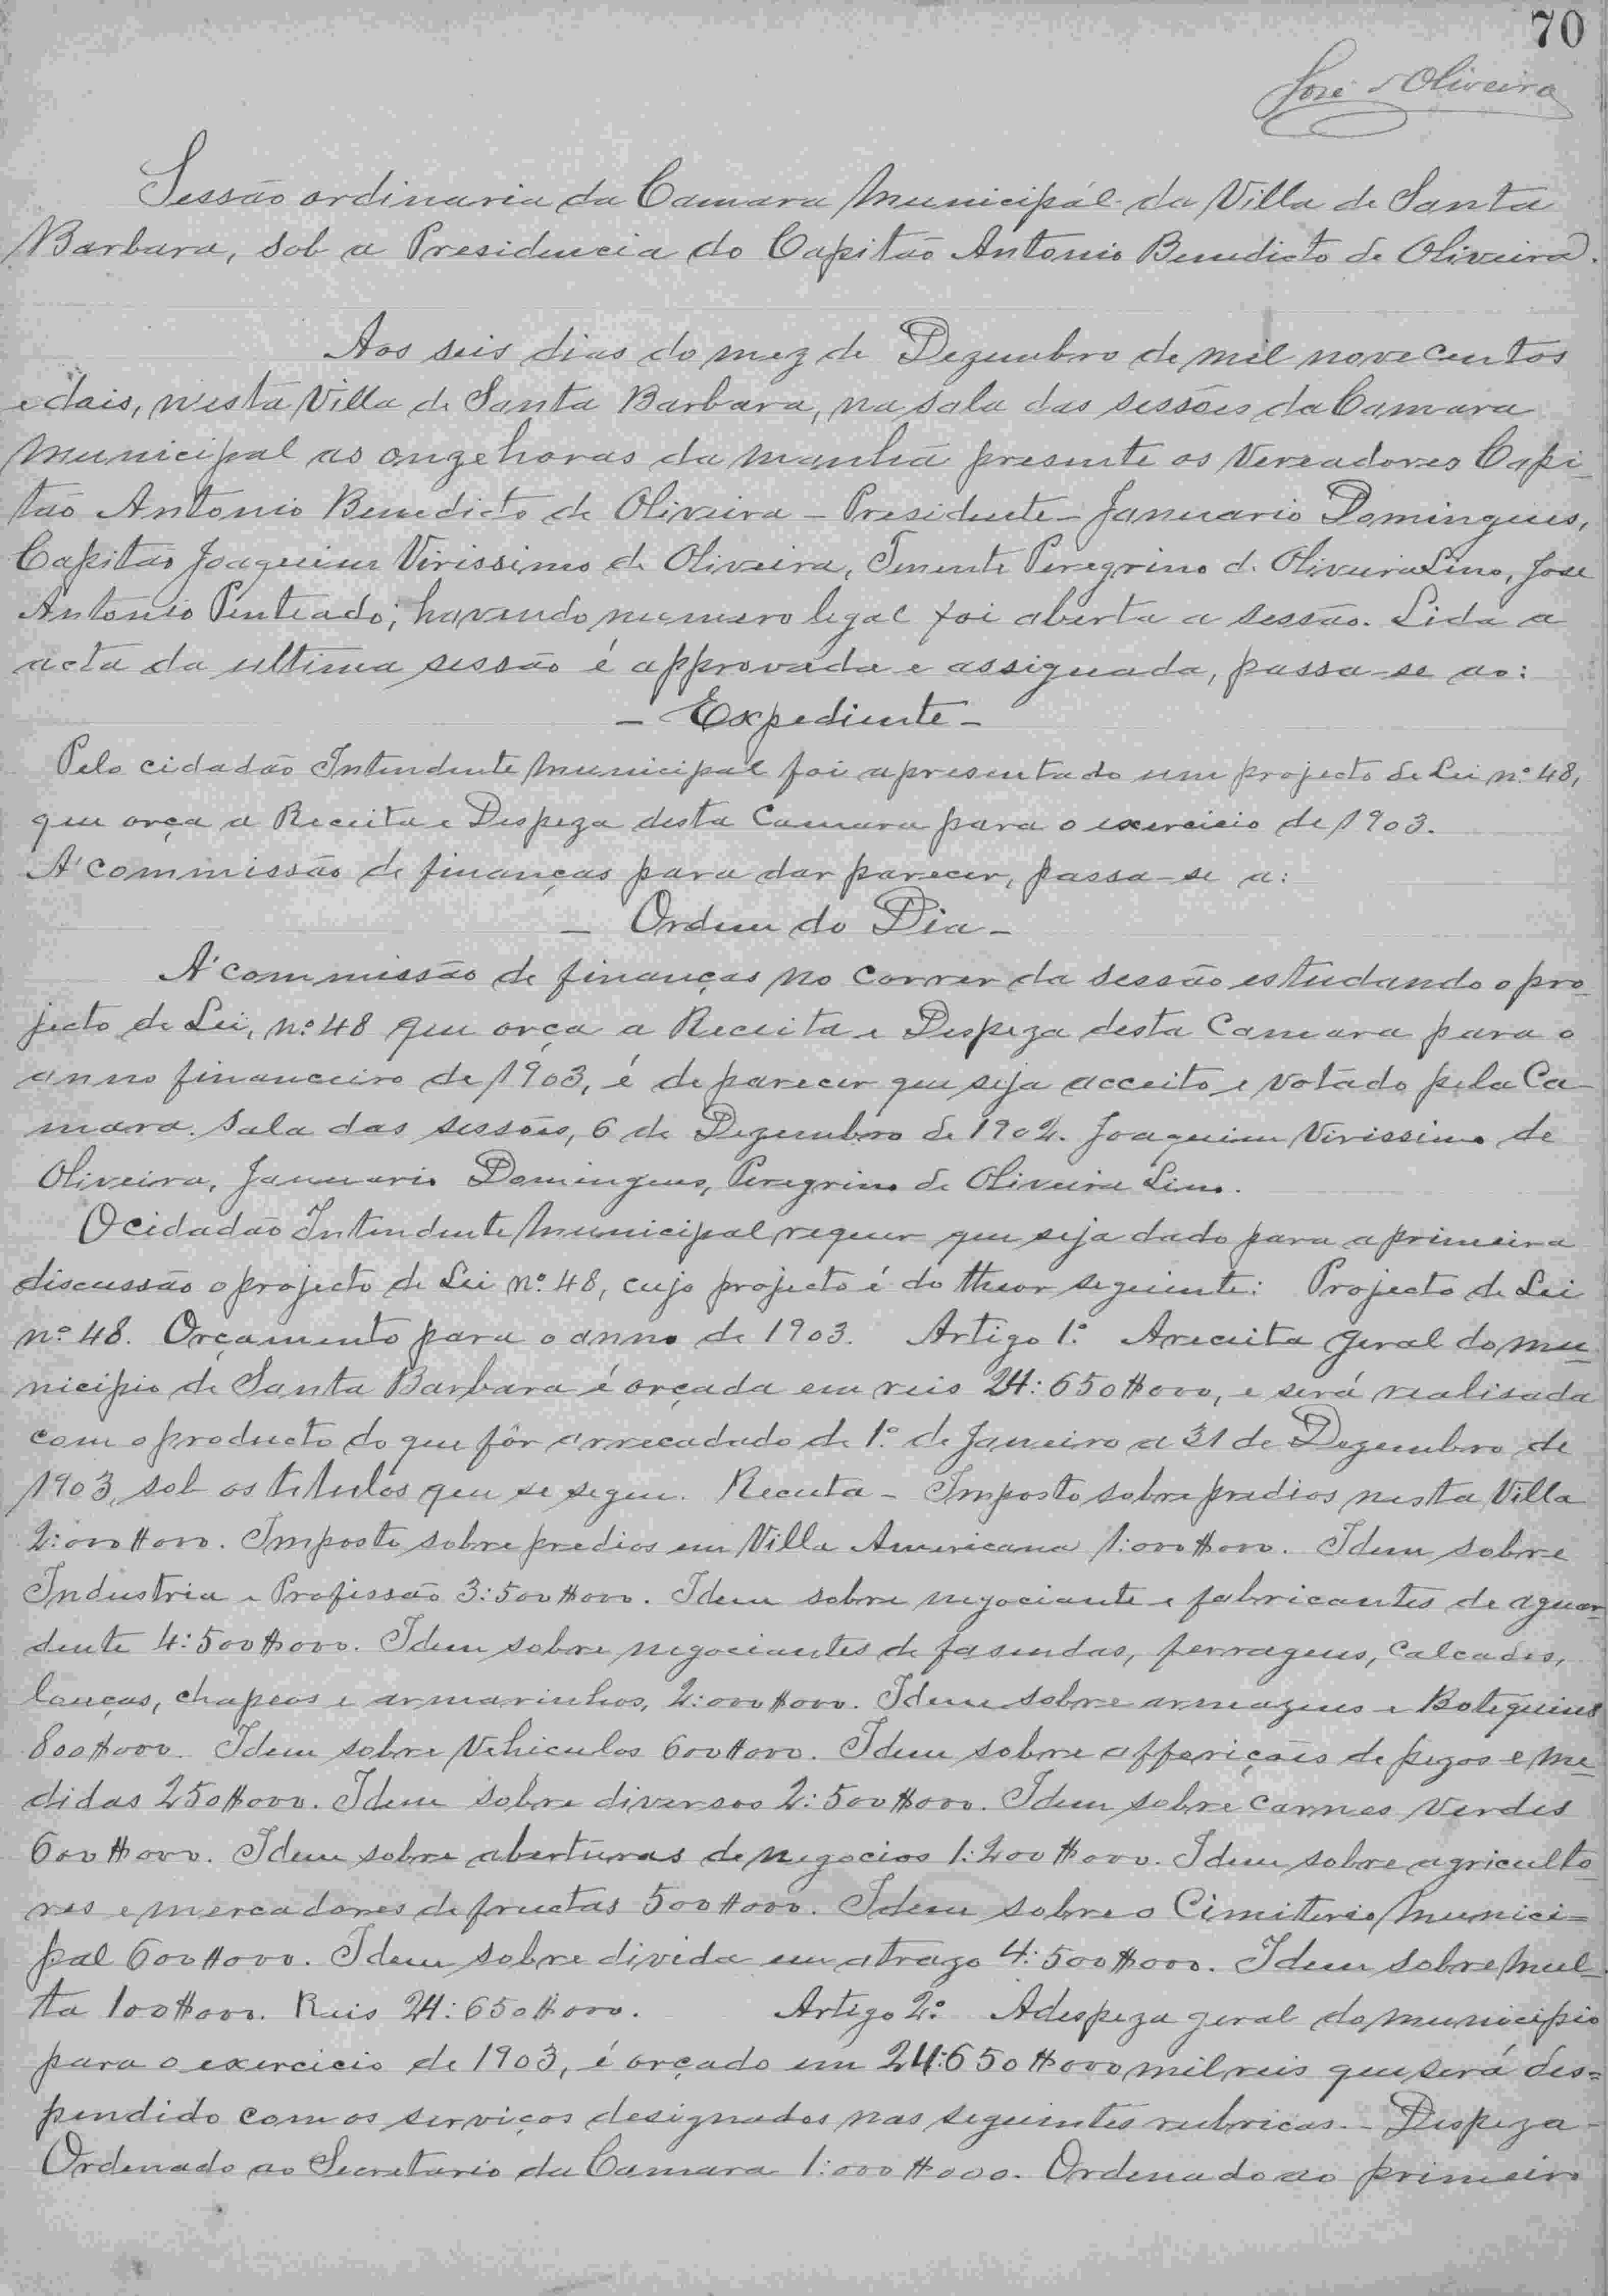 70
José d'Oliveira
Sessão ordinaria da Camara Municipal da Villa de Santa
Barbara, sob a Presidencia do Capitão Antonio Benedicto de Oliveira.
Aos seis dias do mez de Dezembro de mil novecentos
e dois, n'esta Villa de Santa Barbara, na sala das sessões da Camara
Municipal as onze horas da manhã presente os Vereadores Capi-
tão Antonio Benedicto de Oliveira – Presidente – Januario Domingues,
Capitão Joaquim Virissimo de Oliveira, Tenente Peregrino de Oliveira Lino, José
Antonio Penteado; havendo numero legal foi aberta a sessão. Lida a
acta da ultima sessão é approvada e assignada, passa-se ao:
– Expediente –
Pelo cidadão Intendente Municipal foi apresentado um projecto de Lei nº 48,
que orça a Receita e Despeza desta Camara para o exercicio de 1903.
A' commissão de finanças para dar parecer, passa-se a:
– Ordem do Dia –
A' commissão de finanças no correr da sessão estudando o pro-
jecto de Lei, nº 48 que orça a Receita e Despeza desta Camara para o
anno financeiro de 1903, é de parecer que seja acceito e votado pela Ca-
mara. Sala das sessões, 6 de Dezembro de 1902. Joaquim Virissimo de
Oliveira, Januario Domingues, Peregrino de Oliveira Lino.
O cidadão Intendente Municipal requer que seja dado para a primeira
discussão o projecto de Lei nº 48, cujo projecto é do theor seguinte: Projecto de Lei
nº 48. Orçamento para o anno de 1903. Artigo 1º A receita geral do mu-
nicipio de Santa Barbara é orçada em reis 24:650$000, e será realisada
com o producto do que fôr arrecadado de 1º de Janeiro a 31 de Dezembro de
1903, sob os titulos que se segue. Receita – Imposto sobre predios nesta Villa
2:000$000. Imposto sobre predios em Villa Americana 1:000$000. Idem sobre
Industria e Profissão 3:500$000. Idem sobre negociante e fabricantes de aguar-
dente 4:500$000. Idem sobre negociantes de fasendas, ferragens, calcados,
louças, chapeos e armarinhos, 2:000$000. Idem sobre armazens e Botequins
800$000. Idem sobre Vehiculos 600$000. Idem sobre afferições de pezos e me-
didas 250$000. Idem sobre diversos 2:500$000. Idem sobre Carnes Verdes
600$000. Idem sobre aberturas de negocios 1:200$000. Idem sobre agriculto-
res e mercadores de fructas 500$000. Idem sobre o Cimiterio Munici=
pal 600$000. Idem sobre divida em atrazo 4:500$000. Idem sobre Mul-
ta 100$000. Reis 24:650$000. Artigo 2º A despeza geral do municipio
para o exercicio de 1903, é orçado em 24:650$000 mil reis que será des=
pendido com os serviços designados nas seguintes rubricas. – Despeza –
Ordenado ao Secretario da Camara 1:000$000. Ordenado ao primeiro